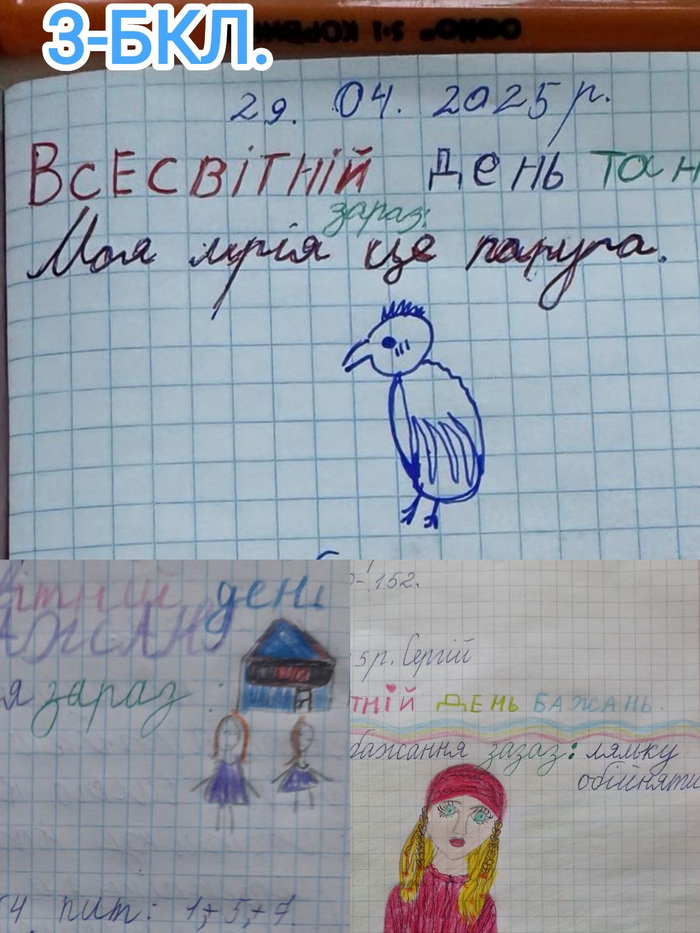 3-БКЛ.
29. 04. 2025 р.
ВСЕСВІТНІЙ ДЕНЬ ТАН
зараз:
Моя мрія це папуга.
ітній день
АЖАН
я зараз :
пит: 1,+5,+7
152.
5р. Сергій
ТНІЙ ДЕНЬ БАЖАНЬ.
бажання зазаз: ляльку
обійняти